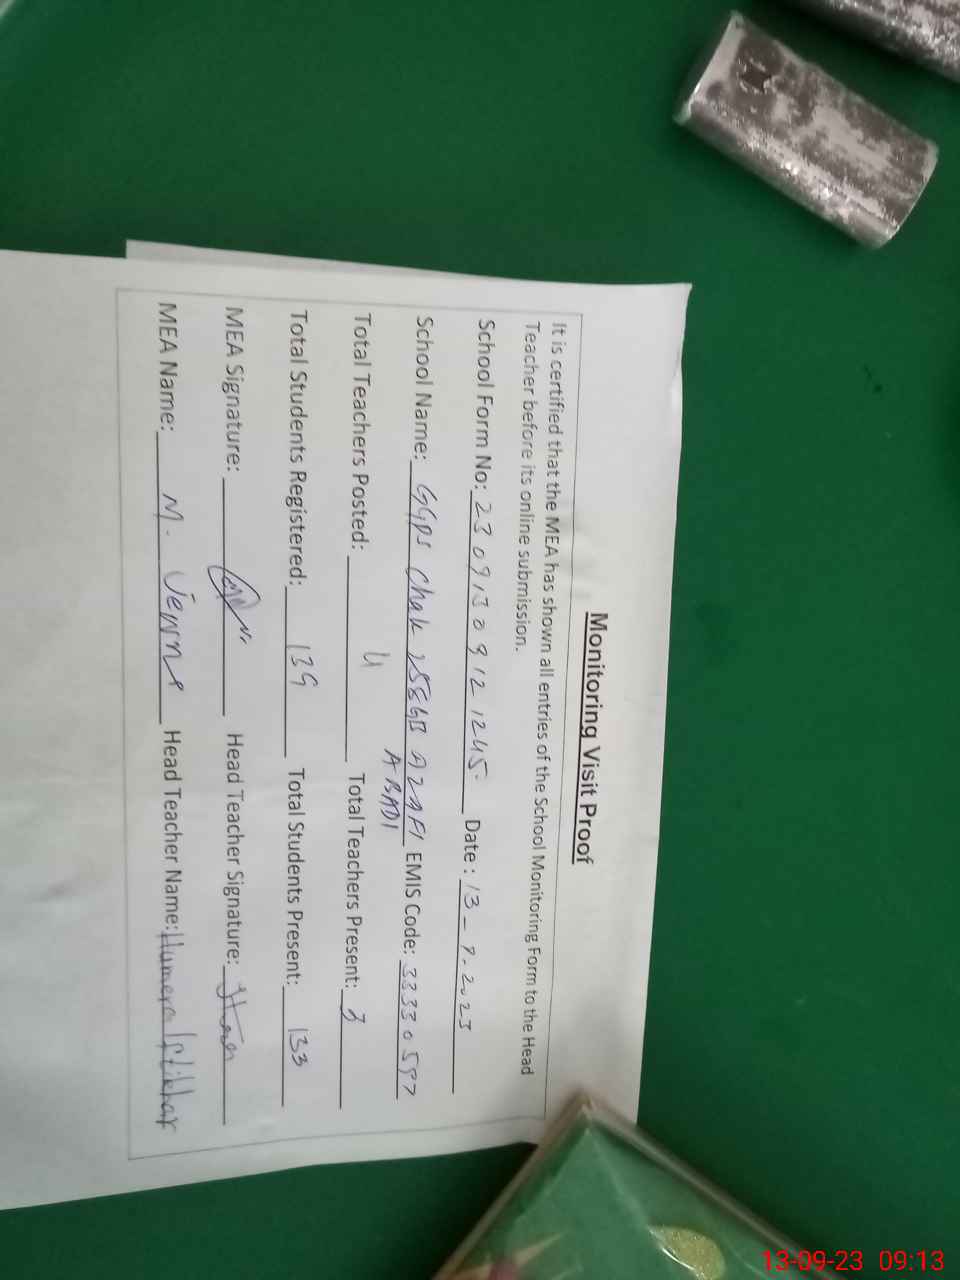 Monitoring Visit Proof
It is certified that the MEA has shown all entries of the School Monitoring Form to the Head
Teacher before its online submission.
School Form No: 23091309121245. Date : 13-9-2023
School Name: GGPS Chak 258GB EMIS Code: 33330597
ABADI
Total Teachers Posted: 4 Total Teachers Present: 3
Total Students Registered: 139 Total Students Present: 133
MEA Signature: Head Teacher Signature:
MEA Name: M. Head Teacher Name: Humera Iftikhar
13-09-23 09:13